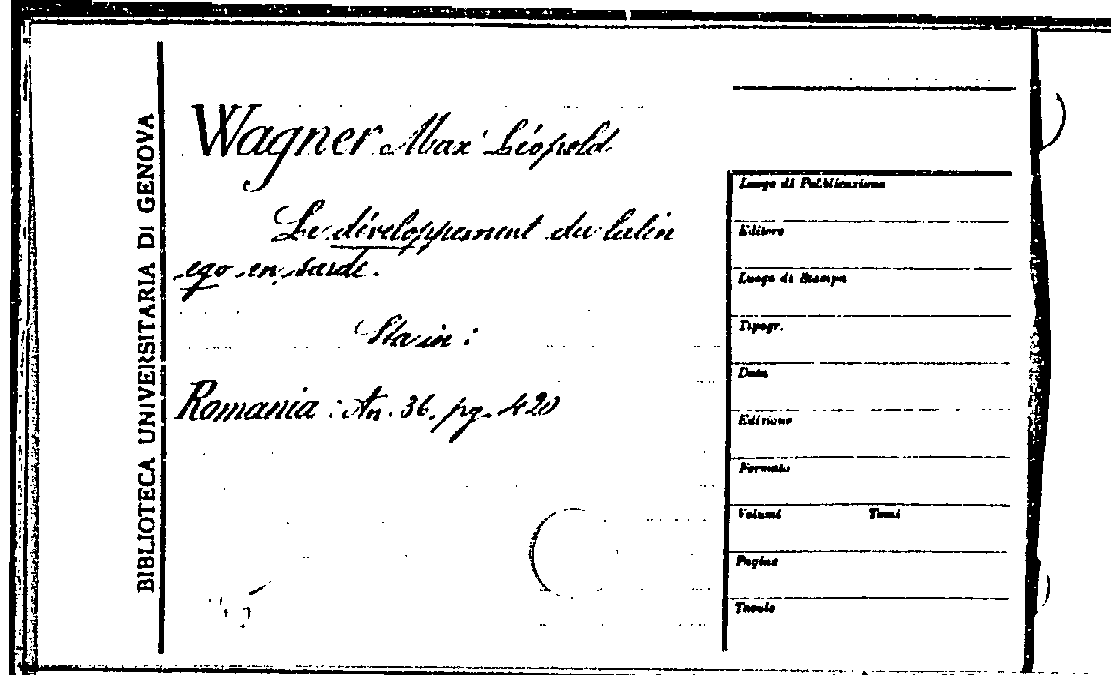 BIBLIOTECA UNIVERSITARIA DI GENOVA
Wagner Max Léopold
Le développement du latin
ego en sarde.
Sta in:
Romania: An. 36, pg. 420
Luogo di Pubblicazione
Editore
Luogo di Stampa
Tipogr.
Data
Edizione
Formato
Volumi Tomi
Pagine
Tavole